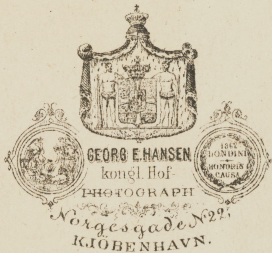 GEORG E. HANSEN
kongl. Hof-
PHOTOGRAPH
1862
LONDINI
HONORIS
CAUSA
Norgesgade No 22
KJÖBENHAVN.